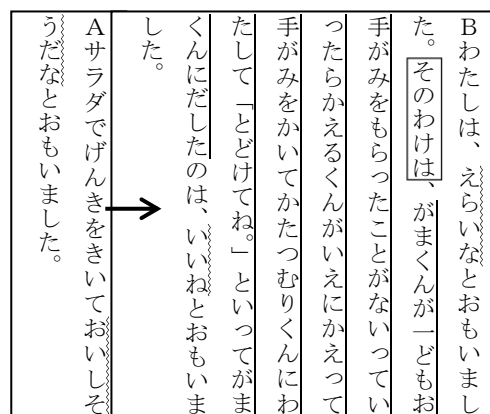 Bわたしは、えらいなとおもいまし
た。そのわけは、がまくんが一どもお
手がみをもらったことがないってい
ったらかえるくんがいえにかえって
手がみをかいてかたつむりくんにわ
たして「とどけてね。」といってがま
くんにだしたのは、いいねとおもいま
した。
Aサラダでげんきをきいておいしそ
うだなとおもいました。